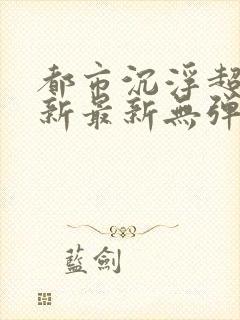 都市沉浮超
新最新無彈
藍劍